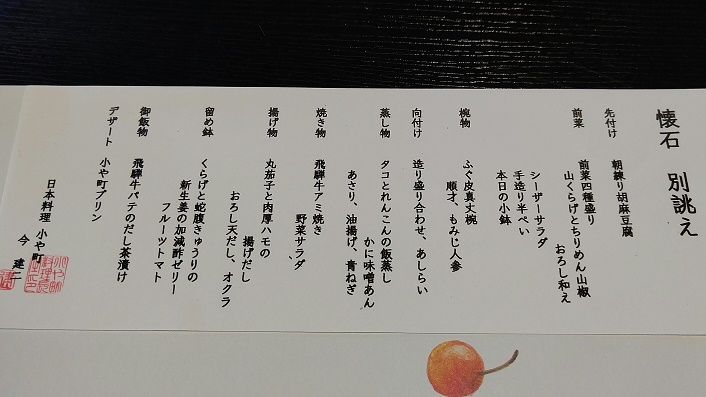 懐石 別誂え
先付け 朝練り胡麻豆腐
前菜 前菜四種盛り
山くらげとちりめん山椒
おろし和え
シーザーサラダ
手造り半ぺい
本日の小鉢
椀物 ふぐ皮真丈椀
順才、もみじ人参
向付け 造り盛り合わせ、あしらい
蒸し物 タコとれんこんの飯蒸し
かに味噌あん
あさり、油揚げ、青ねぎ
焼き物 飛騨牛アミ焼き
野菜サラダ
揚げ物 丸茄子と肉厚ハモの
揚げだし
おろし天だし、オクラ
留め鉢 くらげと蛇腹きゅうりの
新生姜の加減酢ゼリー
フルーツトマト
御飯物 飛騨牛パテのだし茶漬け
デザート 小や町プリン
日本料理 小や町
今 建二